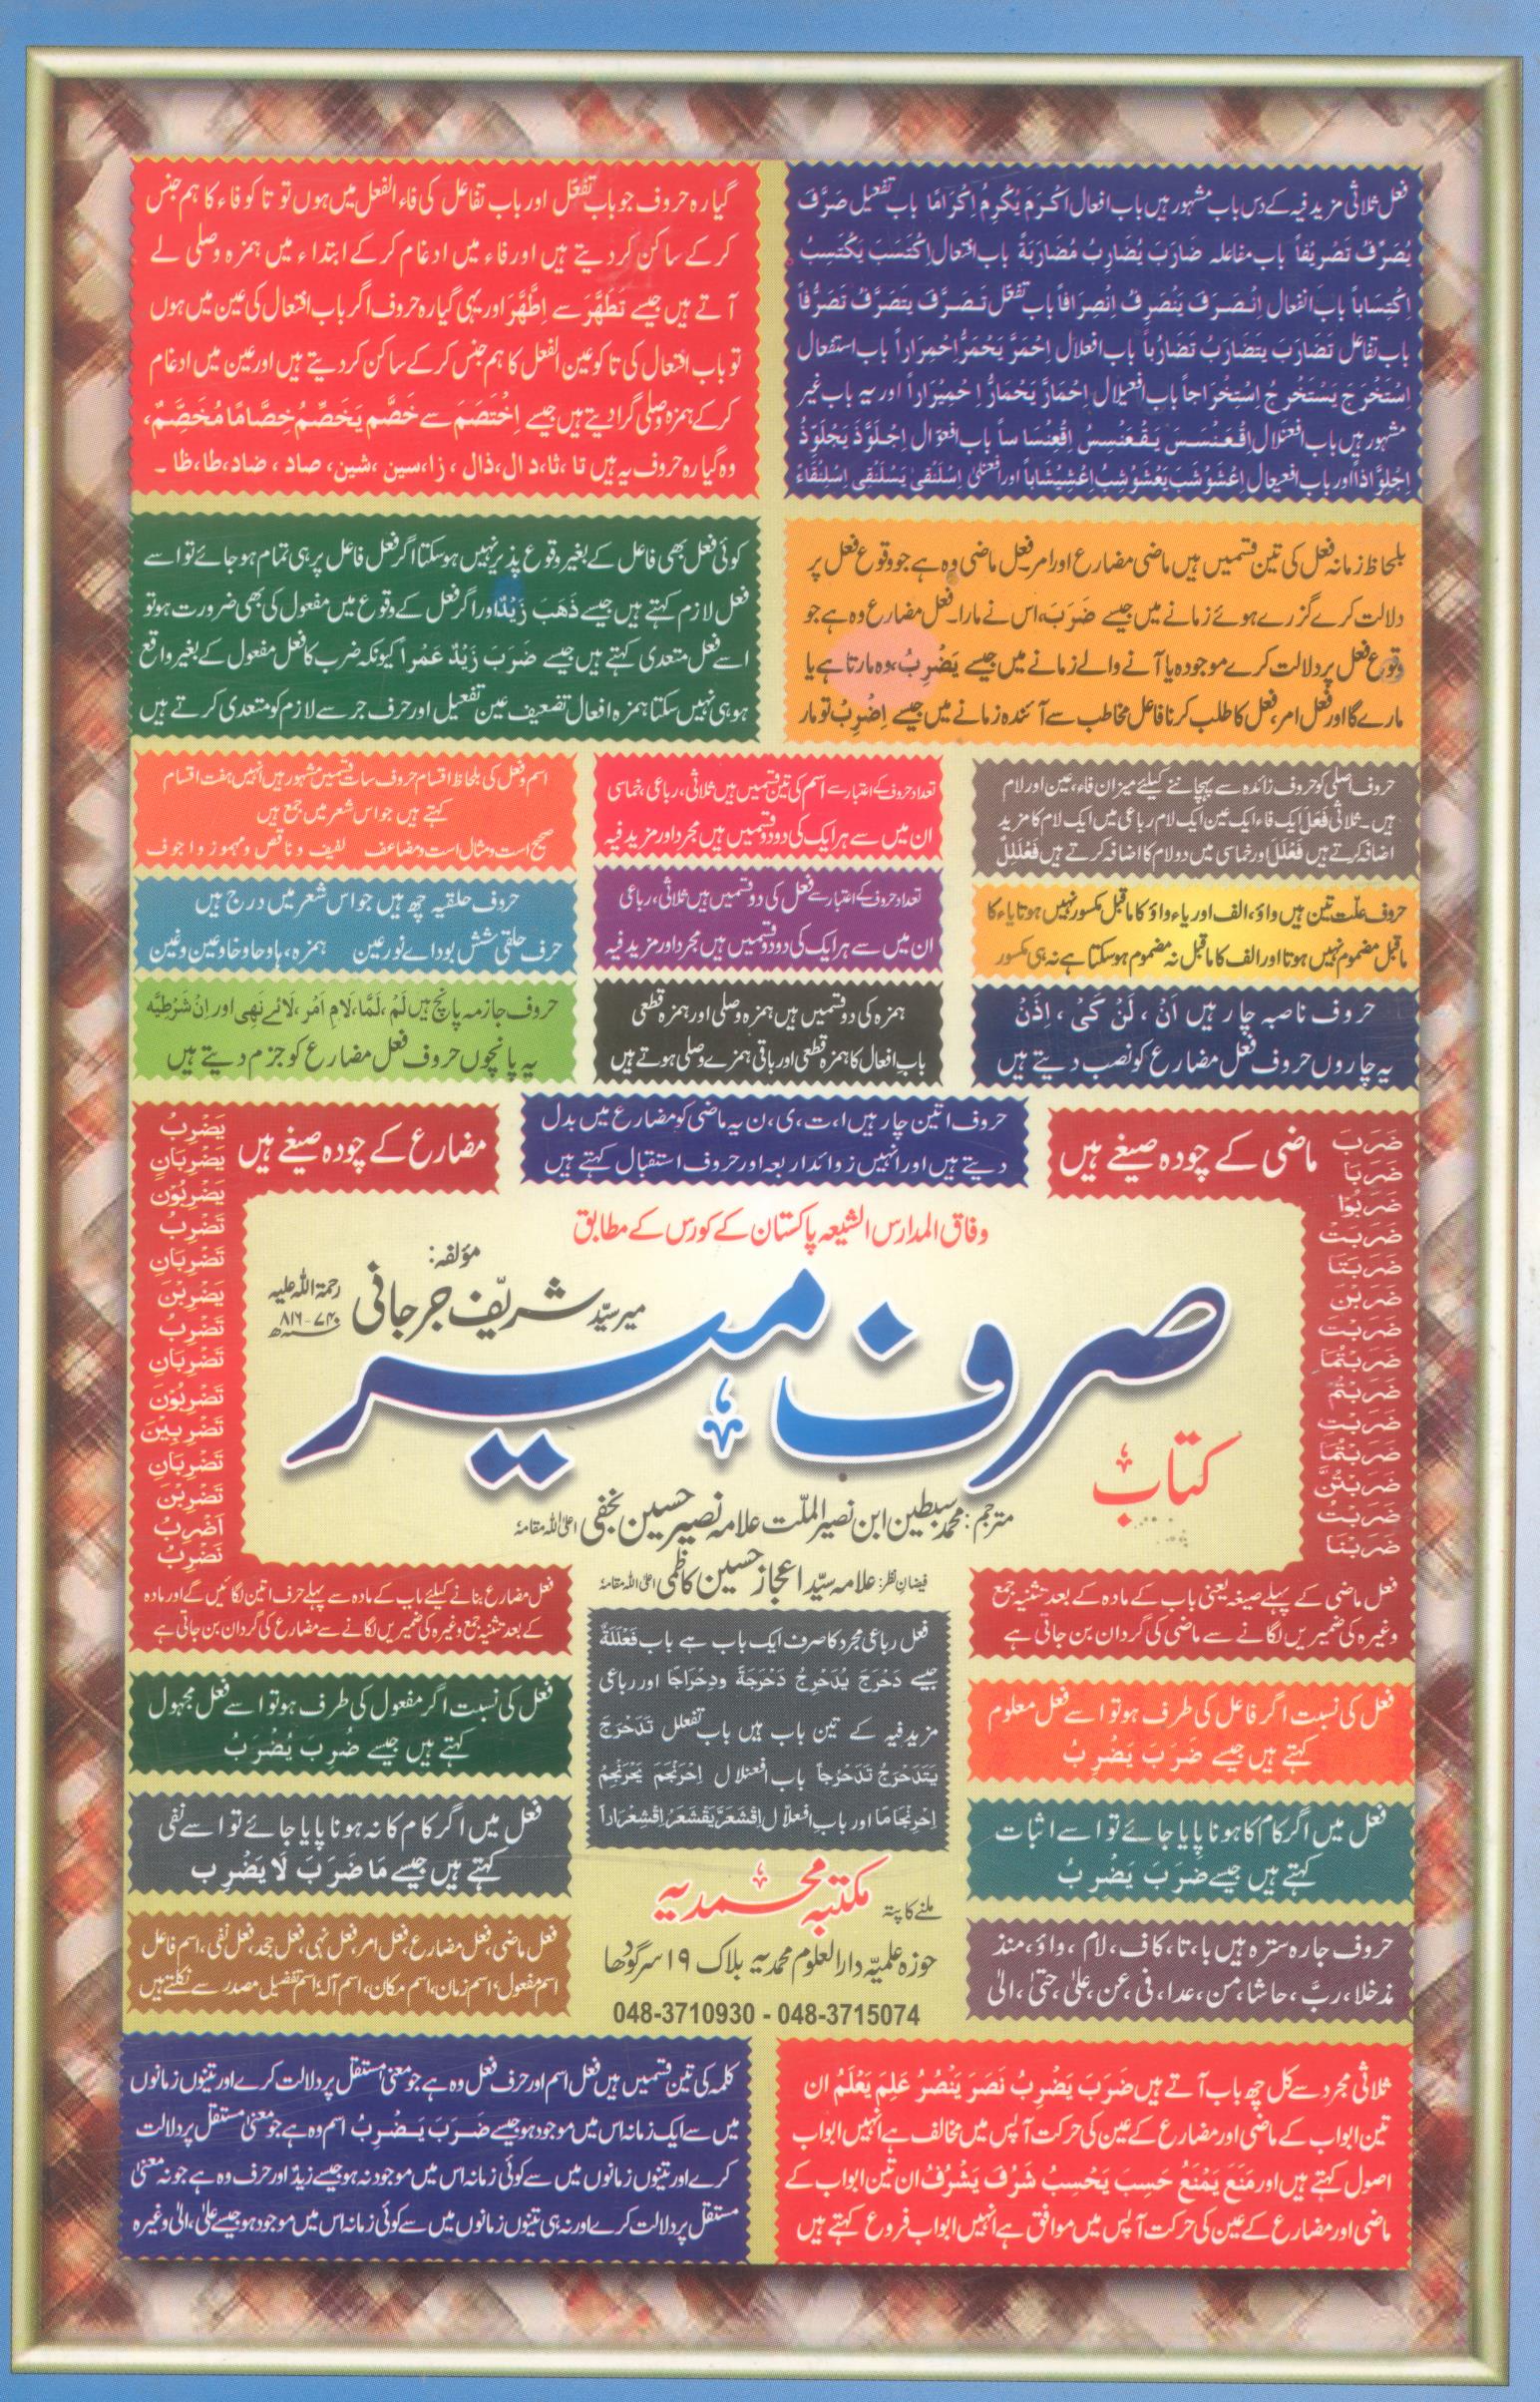 فعل ثلاثی مزید فیہ کے دس باب مشہور ہیں باب افعال اَکْرَمَ یُکْرِمُ اِکْرَامًا باب تفعیل صَرَّفَ
یُصَرِّفُ تَصْرِیْفاً باب مفاعلہ ضَارَبَ یُضَارِبُ مُضَارَبَۃً باب افتعال اِکْتَسَبَ یَکْتَسِبُ
اِکْتِسَاباً باب انفعال اِنْصَرَفَ یَنْصَرِفُ اِنْصِرَافاً باب تفعّل تَصَرَّفَ یَتَصَرَّفُ تَصَرُّفاً
باب تفاعل تَضَارَبَ یَتَضَارَبُ تَضَارُباً باب افعلال اِحْمَرَّ یَحْمَرُّ اِحْمِرَاراً باب استفعال
اِسْتَخْرَجَ یَسْتَخْرِجُ اِسْتِخْرَاجاً باب افعیلال اِحْمَارَّ یَحْمَارُّ اِحْمِیْرَاراً اور یہ باب غیر
مشہور ہیں باب افعنلال اِقْعَنْسَسَ یَقْعَنْسِسُ اِقْعِنْسَاساً باب افعوّال اِجْلَوَّذَ یَجْلَوِّذُ
اِجْلِوَّاذاً اور باب افعیعال اِعْشَوْشَبَ یَعْشَوْشِبُ اِعْشِیْشَاباً اور افعنلیٰ اِسْلَنْقیٰ یَسْلَنْقِی اِسْلِنْقَاءً
گیارہ حروف جو باب تفعّل اور باب تفاعل کی فاء الفعل میں ہوں تو تا کو فاء کا ہم جنس
کر کے ساکن کر دیتے ہیں اور فاء میں ادغام کر کے ابتداء میں ہمزہ وصلی لے
آتے ہیں جیسے تَطَهَّرَ سے اِطَّهَّرَ اور یہی گیارہ حروف اگر باب افتعال کی عین میں ہوں
تو باب افتعال کی تا کو عین الفعل کا ہم جنس کر کے ساکن کر دیتے ہیں اور عین میں ادغام
کر کے ہمزہ وصلی گرا دیتے ہیں جیسے اِخْتَصَمَ سے خَصَّم یَخَصِّمُ خِصَّامًا مُخَصِّمٌ،
وہ گیارہ حروف یہ ہیں تا، ثا، دال، ذال، زا، سین، شین، صاد، ضاد، طا، ظا ۔
بلحاظ زمانہ فعل کی تین قسمیں ہیں ماضی مضارع اور امر۔ فعل ماضی وہ ہے جو وقوع فعل پر
دلالت کرے گزرے ہوئے زمانے میں جیسے ضَرَبَ، اس نے مارا۔ فعل مضارع وہ ہے جو
وقوع فعل پر دلالت کرے موجودہ یا آنے والے زمانے میں جیسے یَضْرِبُ، وہ مارتا ہے یا
مارے گا اور فعل امر، فعل کا طلب کرنا فاعل مخاطب سے آئندہ زمانے میں جیسے اِضْرِبْ تو مار
کوئی فعل بھی فاعل کے بغیر وقوع پذیر نہیں ہوسکتا اگر فعل فاعل پر ہی تمام ہو جائے تو اسے
فعل لازم کہتے ہیں جیسے ذَهَبَ زَیْدٌ اور اگر فعل کے وقوع میں مفعول کی بھی ضرورت ہو تو
اسے فعل متعدی کہتے ہیں جیسے ضَرَبَ زَیْدٌ عَمْراً کیونکہ ضرب کا فعل مفعول کے بغیر واقع
ہو ہی نہیں سکتا ہمزہ افعال تضعیف عین تفعیل اور حرف جر سے لازم کو متعدی کرتے ہیں
حروف اصلی کو حروف زائدہ سے پہچاننے کیلئے میزان فاء، عین اور لام
ہیں۔ ثلاثی فَعَلَ ایک فاء ایک عین ایک لام رباعی میں ایک لام کا مزید
اضافہ کرتے ہیں فَعْلَلَ اور خماسی میں دو لام کا اضافہ کرتے ہیں فَعْلَلِلٌ
تعداد حروف کے اعتبار سے اسم کی تین قسمیں ہیں ثلاثی، رباعی، خماسی
ان میں سے ہر ایک کی دو دو قسمیں ہیں مجرد اور مزید فیہ
اسم و فعل کی بلحاظ اقسام حروف سات قسمیں مشہور ہیں انہیں ہفت اقسام
کہتے ہیں جو اس شعر میں جمع ہیں
صحیح است و مثال است و مضاعف لفیف و ناقص و مہموز و اجوف
حروف علّت تین ہیں واؤ، الف اور یاء واؤ کا ماقبل مکسور نہیں ہوتا یاء کا
ماقبل مضموم نہیں ہوتا اور الف کا ماقبل نہ مضموم ہوسکتا ہے نہ ہی مکسور
تعداد حروف کے اعتبار سے فعل کی دو قسمیں ہیں ثلاثی، رباعی
ان میں سے ہر ایک کی دو دو قسمیں ہیں مجرد اور مزید فیہ
حروف حلقیہ چھ ہیں جو اس شعر میں درج ہیں
حرف حلقی شش بود اے نور عین ہمزہ، ہا و حا و خا و عین و غین
حروف ناصبہ چار ہیں اَنْ ، لَنْ کَیْ ، اِذَنْ
یہ چاروں حروف فعل مضارع کو نصب دیتے ہیں
ہمزہ کی دو قسمیں ہیں ہمزہ وصلی اور ہمزہ قطعی
باب افعال کا ہمزہ قطعی اور باقی ہمزے وصلی ہوتے ہیں
حروف جازمہ پانچ ہیں لَمْ، لَمَّا، لَامِ اَمْر، لَائے نَهِی اور اِنْ شَرْطِیَّه
یہ پانچوں حروف فعل مضارع کو جزم دیتے ہیں
ماضی کے چودہ صیغے ہیں
ضَرَبَ
ضَرَبَا
ضَرَبُوْا
ضَرَبَتْ
ضَرَبَتَا
ضَرَبْنَ
ضَرَبْتَ
ضَرَبْتُمَا
ضَرَبْتُمْ
ضَرَبْتِ
ضَرَبْتُمَا
ضَرَبْتُنَّ
ضَرَبْتُ
ضَرَبْنَا
حروف اتین چار ہیں ا، ت، ی، ن یہ ماضی کو مضارع میں بدل
دیتے ہیں اور انہیں زوائد اربعہ اور حروف استقبال کہتے ہیں
مضارع کے چودہ صیغے ہیں
یَضْرِبُ
یَضْرِبَانِ
یَضْرِبُوْنَ
تَضْرِبُ
تَضْرِبَانِ
یَضْرِبْنَ
تَضْرِبُ
تَضْرِبَانِ
تَضْرِبُوْنَ
تَضْرِبِیْنَ
تَضْرِبَانِ
تَضْرِبْنَ
اَضْرِبُ
نَضْرِبُ
وفاق المدارس الشیعہ پاکستان کے کورس کے مطابق
مؤلفہ:
میر سیّد شریف جرجانی رحمۃ اللہ علیہ
۷۴۰-۸۱۶ھ
کتاب
صرف میر
مترجم: محمد سبطین ابن نصیر الملّت علامہ نصیر حسین نجفی اعلیٰ اللہ مقامہٗ
فیضانِ نظر: علامہ سیّد اعجاز حسین کاظمی اعلیٰ اللہ مقامہٗ
فعل ماضی کے پہلے صیغہ یعنی باب کے مادہ کے بعد تثنیہ جمع
وغیرہ کی ضمیریں لگانے سے ماضی کی گردان بن جاتی ہے
فعل مضارع بنانے کیلئے باب کے مادہ سے پہلے حرف اتین لگائیں گے اور مادہ
کے بعد تثنیہ جمع وغیرہ کی ضمیریں لگانے سے مضارع کی گردان بن جاتی ہے
فعل رباعی مجرد کا صرف ایک باب ہے باب فَعْلَلَۃٌ
جیسے دَحْرَجَ یُدَحْرِجُ دَحْرَجَۃً ودِحْرَاجًا اور رباعی
مزید فیہ کے تین باب ہیں باب تفعلل تَدَحْرَجَ
یَتَدَحْرَجُ تَدَحْرُجاً باب افعنلال اِحْرَنْجَمَ یَحْرَنْجِمُ
اِحْرِنْجَامًا اور باب افعلّال اِقْشَعَرَّ یَقْشَعِرُّ اِقْشِعْرَاراً
فعل کی نسبت اگر فاعل کی طرف ہو تو اسے فعل معلوم
کہتے ہیں جیسے ضَرَبَ یَضْرِبُ
فعل کی نسبت اگر مفعول کی طرف ہو تو اسے فعل مجہول
کہتے ہیں جیسے ضُرِبَ یُضْرَبُ
فعل میں اگر کام کا ہونا پایا جائے تو اسے اثبات
کہتے ہیں جیسے ضَرَبَ یَضْرِبُ
فعل میں اگر کام کا نہ ہونا پایا جائے تو اسے نفی
کہتے ہیں جیسے مَا ضَرَبَ لَا یَضْرِب
حروف جارہ سترہ ہیں با، تا، کاف، لام ، واؤ، منذ
مذ خلا، ربَّ، حاشا، من، عدا، فی، عن، علیٰ، حتیٰ، الیٰ
ملنے کا پتہ مکتبہ محمدیہ
حوزہ علمیّہ دارالعلوم محمدیہ بلاک ۱۹ سرگودھا
048-3710930 - 048-3715074
فعل ماضی، فعل مضارع، فعل امر، فعل نہی، فعل جحد، فعل نفی، اسم فاعل
اسم مفعول، اسم زمان، اسم مکان، اسم آلہ، اسم تفضیل مصدر سے نکلتے ہیں
ثلاثی مجرد سے کل چھ باب آتے ہیں ضَرَبَ یَضْرِبُ نَصَرَ یَنْصُرُ عَلِمَ یَعْلَمُ ان
تین ابواب کے ماضی اور مضارع کے عین کی حرکت آپس میں مخالف ہے انہیں ابواب
اصول کہتے ہیں اور مَنَعَ یَمْنَعُ حَسِبَ یَحْسِبُ شَرُفَ یَشْرُفُ ان تین ابواب کے
ماضی اور مضارع کے عین کی حرکت آپس میں موافق ہے انہیں ابواب فروع کہتے ہیں
کلمہ کی تین قسمیں ہیں فعل اسم اور حرف فعل وہ ہے جو معنیٰ مستقل پر دلالت کرے اور تینوں زمانوں
میں سے ایک زمانہ اس میں موجود ہو جیسے ضَرَبَ یَضْرِبُ اسم وہ ہے جو معنیٰ مستقل پر دلالت
کرے اور تینوں زمانوں میں سے کوئی زمانہ اس میں موجود نہ ہو جیسے زیدٌ اور حرف وہ ہے جو نہ معنیٰ
مستقل پر دلالت کرے اور نہ ہی تینوں زمانوں میں سے کوئی زمانہ اس میں موجود ہو جیسے علیٰ، الیٰ وغیرہ